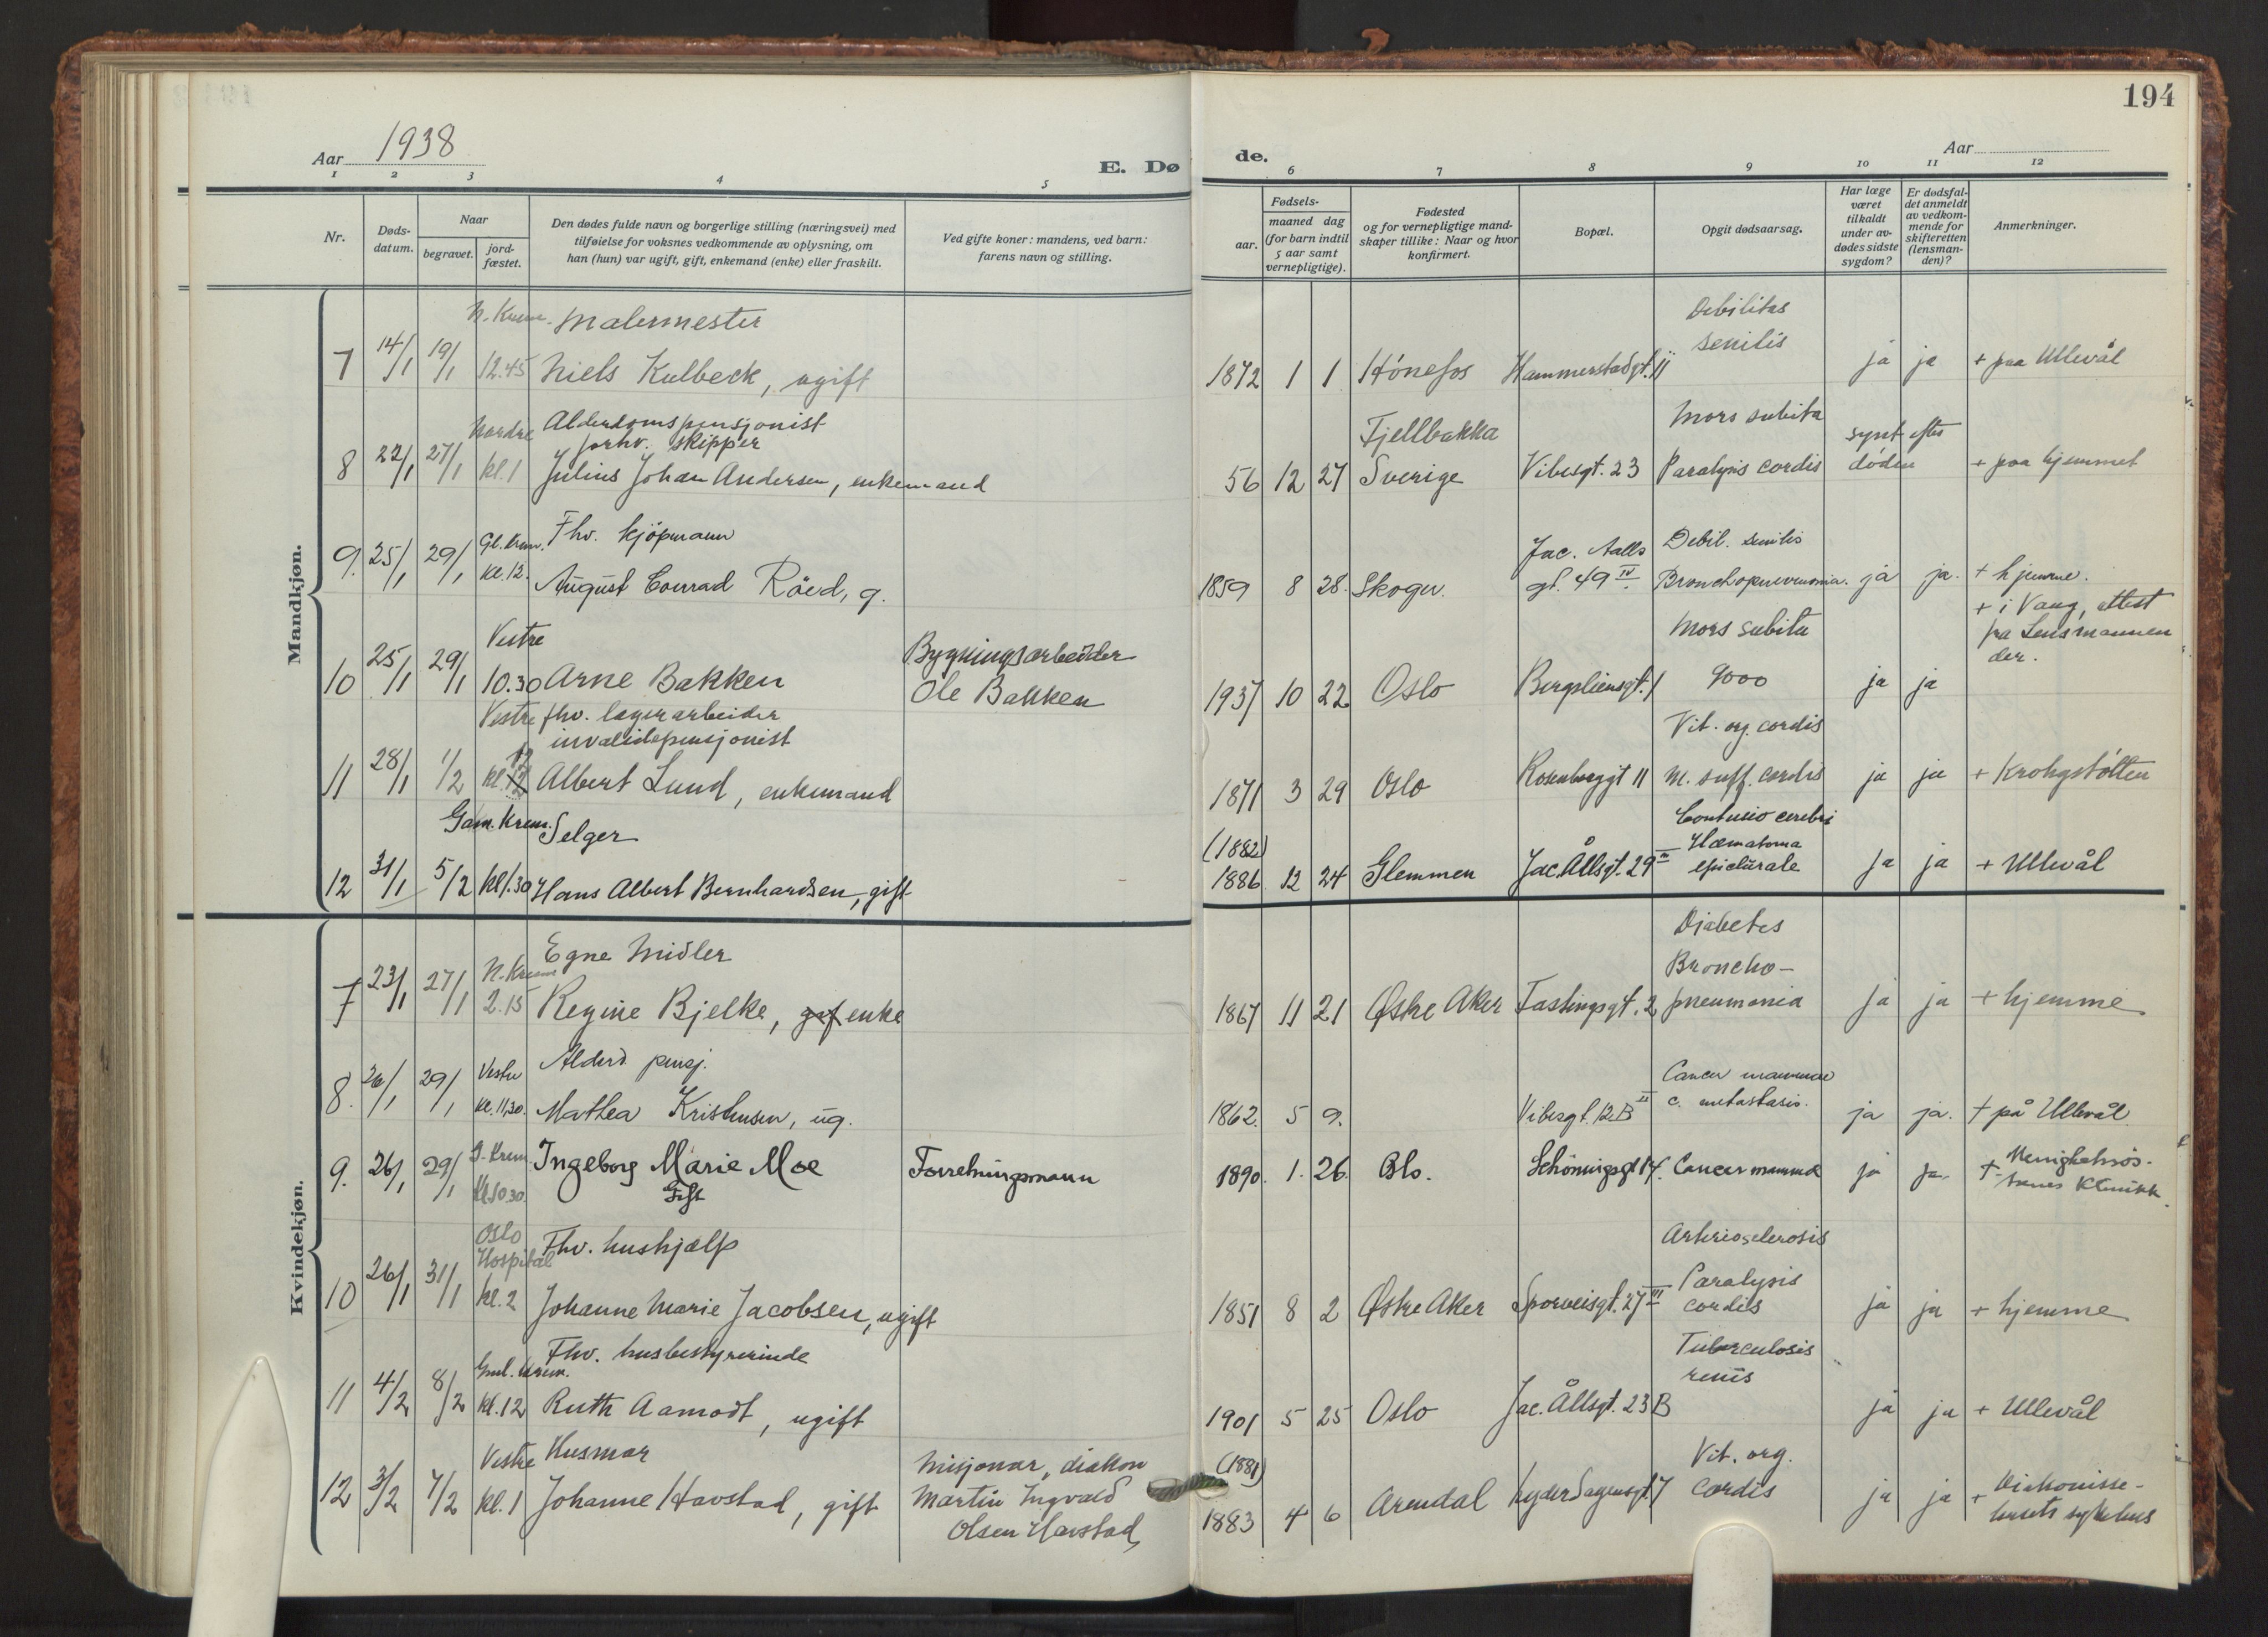 194
Aar 1938
E. Dø
de.
Aar
1 2 3 4 5 6 7 8 9 10 11 12
Nr.
Døds-
datum.
Naar
begravet.
jord-
fæstet.
Den dødes fulde navn og borgerlige stilling (næringsvei) med
tilføielse for voksnes vedkommende av oplysning, om
han (hun) var ugift, gift, enkemand (enke) eller fraskilt.
Ved gifte koner: mandens, ved barn:
farens navn og stilling.
Fødsels-
aar.
maaned dag
(for barn indtil
5 aar samt
vernepligtige).
Fødested
og for vernepligtige mand-
skaper tillike: Naar og hvor
konfirmert.
Bopæl.
Opgit dødsaarsag.
Har læge
været
tilkaldt
under av-
dødes sidste
sygdom?
Er dødsfal-
det anmeldt
av vedkom-
mende for
skifteretten
(lensman-
den)?
Anmerkninger.
Mandkjøn.
N. Krem. Malermester Debilitas
senilis
7 14/1 19/1 12.45 Niels Kulbeck, ugift 1872 1 1 Hönefos Hammerstadgt. 11 ja ja + paa Ullevål
Nordre Alderdomspensjonist Fjellbakka Mors subita
forhv. skipper synt efter
8 22/1 27/1 kl. 1 Julius Johan Andersen, enkemand 56 12 27 Sverige Vibesgt. 23 Paralysis cordis döden + paa hjemmet
Gl. Krem. Fhv. kjöpmann Jac. Aalls Debil. senilis
9. 25/1 29/1 Kl. 12. August Conrad Röed, g. 1859 8 28. Skoger. gt. 49 IV Bronchopneumonia. ja ja. + hjemme.
Vestre Bygningsarbeider Mors subita + i Vang, attest
fra Lensmannen
der.
10 25/1 29/1 10.30 Arne Bakken Ole Bakken 1937 10 22 Oslo Bergsliensgt. 1 9000 ja ja
Vestre fhv. lagerarbeider Vit. org. cordis
invalidepensjonist
11 28/1 1/2 kl. 12 Albert Lund, enkemand 1871 3 29 Oslo Rosenborggt 11 m. suff. cordis ja ja + Krohgstötten
Gam. Krem. Selger (1882) Contusio cerebri
Hæmatoma
12 31/1 5/2 kl 1.30 Hans Albert Bernhardsen, gift 1886 12 24 Glemmen Jac. Ållsgt. 29 epidurale ja ja + Ullevål
Kvindekjøn.
N. Krem Egne Midler Diabetes
Broncho-
7 23/1 27/1 2.15 Regine Bjelke, gif enke 1867 11 21 Østre Aker Fastingsgt. 2 pneumonia ja ja + hjemme
Vestre Alderd. pensj. Cancer mammae
8. 26/1 29/1 Kl. 11,30. Mathea Kristensen, ug. 1862. 5 9. Vibesgt. 12 B II c. metastasis. ja ja. + på Ullevål
9. 26/1 29/1 G. Krem Ingeborg Marie Moe Forretningsmann 1890. 1. 26. Oslo. Schöningsgt 14. Cancer mammae ja ja. + Menighetssös-
Kl 10.30. Gift trenes Klinikk.
Oslo
Hospital Fhv. hushjælp Arteriosclerosis
Paralysis
10 26/1 31/1 kl. 2 Johanne Marie Jacobsen, ugift 1851 8 2 Østre Aker Sporveisgt. 27 III cordis ja ja + hjemme
Gml. Krem. Fhv. husbestyrerinde Tuberculosis
renis
11 4/2 8/2 kl. 12 Ruth Aamodt, ugift 1901 5 25 Oslo Jac. Ållsgt. 23 B ja ja + Ullevål
Vestre Husmor Misjonær, diakon (1881) Vit. org.
12 3/2 7/2 kl. 1 Johanne Havstad, gift Martin Ingvald 1883 4 6 Arendal Lyder Sagensgt. 7 cordis ja ja + Diakonisse-
Olsen Havstad husets sykehus